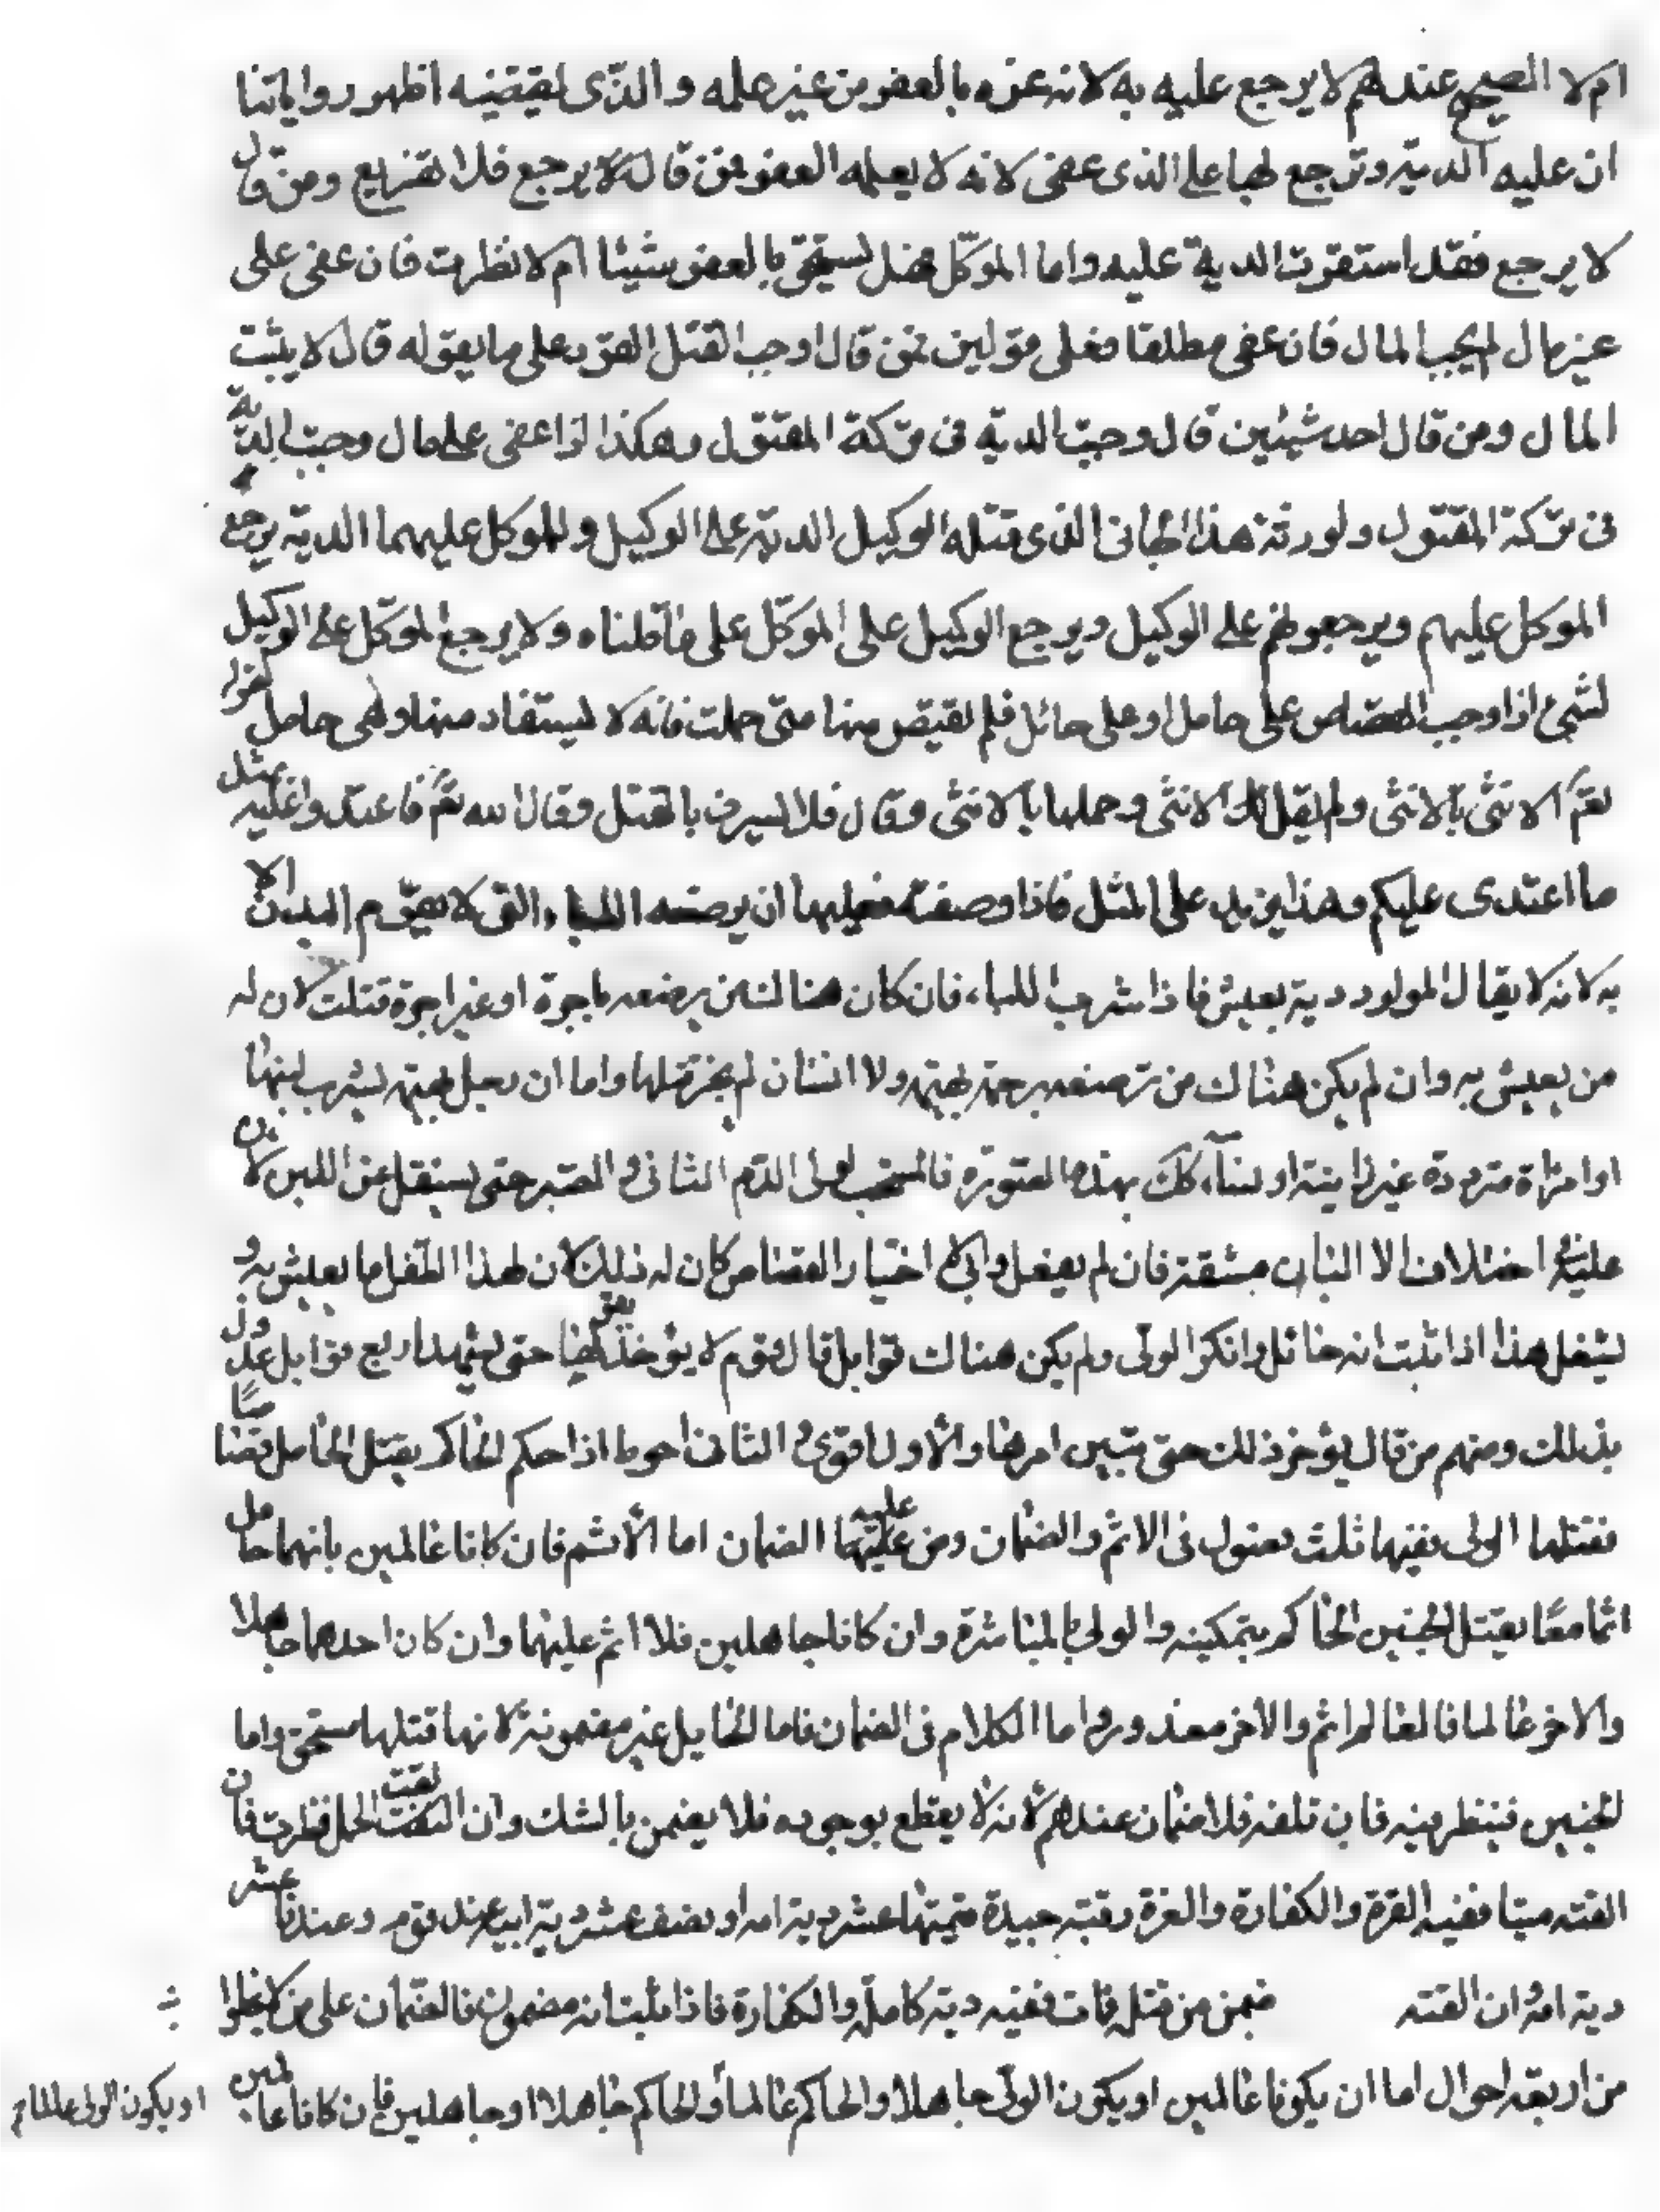 ام لا الصحيح عندهم لا يرجع عليه به لانه غره بالعفو من غير علمه والذي يقتضيه اظهر رواياتنا
ان عليه الدية وترجع بها على الذي عفى لانه لا يعلمه العفو فمن قال لا يرجع فلا تفريع ومن قال
لا يرجع فقد استقرت الدية عليه واما الموكل فهل يستحق بالعفو شيئا ام لا نظرت فان عفى على
غير مال لم يجب المال فان عفى مطلقا فعلى قولين فمن قال اوجب القتل القود على ما يقوله قال لا يثبت
المال ومن قال احد شيئين قال وجبت الدية في تركة المقتول وهكذا اذا عفى على مال وجبت الدية
في تركة المقتول ولورثة هذا الجاني الذي قتله الوكيل الدية على الوكيل وللموكل عليهما الدية يرجع
الموكل عليهم ويرجعوا هم على الوكيل ويرجع الوكيل على الموكل على ما قلناه ولا يرجع الموكل على الوكيل
لشيء اذا وجب القصاص على حامل او على حائل فلم يقتص منها حتى حملت فانه لا يستقاد منها وهي حامل لقوله
تع الانثى بالانثى ولم يقل الانثى وحملها بالانثى وقال فلا يسرف بالقتل وقال الله تع فاعتدوا عليه بمثل
ما اعتدى عليكم وهذا يزيد على المثل فاذا وضعت فعليها ان يرضعه اللباء التي لا يقوم البدن الا
به لانه لا يقال المولود دية يعيش فاذا شرب اللباء فان كان هنالك من يرضعه باجرة او غير اجرة قتلت لان له
من يعيش به وان لم يكن هناك من ترضعه بهيمة ولا انسان لم يجز قتلها واما ان يحل بهيمة يشرب لبنها
او امراة مترددة غير راتبة او نساء كك بهذه الصورة فالمستحب لولي الدم الثاني والصبر حتى يستقل عن اللبن لان
عليه اختلاف الالبان مشقة فان لم يفعل وابى الا اختيار القصاص كان له ذلك لان لهذا الطفل ما يعيش به و
يشغل هذا اذا ثبت انه حائل وانكر الولى ولم يكن هناك قوابل قال قوم لا يؤخذ بقولها حتى يشهد اربع قوابل عدول
بذلك ومنهم من قال يؤخر ذلك حتى يتبين امرها والاول اقوى والثاني احوط اذا حكم الحاكم بقتل الحامل قصاصًا
فقتلها الولى ففيها ثلث فصول في الاثم والضمان ومن عليه الضمان اما الاثم فان كانا عالمين بانها حامل
اثما معًا بقتل الجنين الحاكم بتمكينه والولى بالمباشرة وان كانا جاهلين فلا اثم عليهما وان كان احدهما جاهلا
والاخر عالما فالعالم اثم والاخر معذور واما الكلام في الضمان فاما الحايل غير مضمونة لانها قتلها مستحق واما
الجنين فينظر فيه فان تلفه فلا ضمان عندهم لانه لا يقطع بوجوده فلا يضمن بالشك وان القت الحمل نظرت فان
القته ميتا ففيه الغرة والكفارة والغرة رقبة جيدة قيمتها عشر دية امه او نصف عشر دية ابيه عند قوم وعندنا عشر
دية امه وان القته ضمن من قتل فات ففيه دية كاملة والكفارة فاذا ثبت انه مضمون فالضمان على من لا يخلوا
من اربعة احوال اما ان يكونا عالمين او يكون الولى جاهلا والحاكم عالما والحاكم جاهلا او جاهلين فان كانا عالمين
او يكون الولى عالما